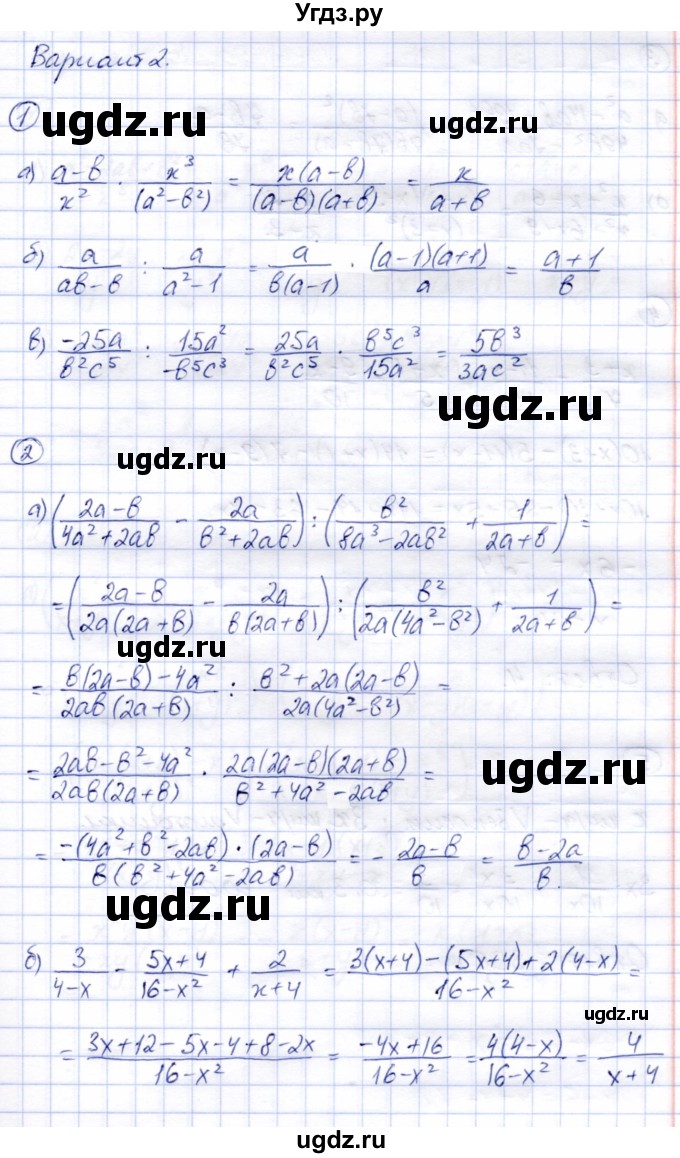 Угдз.ру
Вариант 2.
1
ugdz.ru ugdz.ru
а) (a-b)/x² · x³/(a²-b²) = x(a-b)/((a-b)(a+b)) = x/(a+b)
б) a/(ab-b) : a/(a²-1) = a/(b(a-1)) · (a-1)(a+1)/a = (a+1)/b
в) -25a/(b²c⁵) : 15a²/(-b⁵c³) = 25a/(b²c⁵) · b⁵c³/(15a²) = 5b³/(3ac²)
ugdz.ru
2
ugdz.ru
а) ((2a-b)/(4a²+2ab) - 2a/(b²+2ab)) : (b²/(8a³-2ab²) + 1/(2a+b)) =
= ((2a-b)/(2a(2a+b)) - 2a/(b(2a+b))) : (b²/(2a(4a²-b²)) + 1/(2a+b)) =
ugdz.ru
= (b(2a-b)-4a²)/(2ab(2a+b)) : (b²+2a(2a-b))/(2a(4a²-b²)) =
= (2ab-b²-4a²)/(2ab(2a+b)) · 2a(2a-b)(2a+b)/(b²+4a²-2ab) =
ugdz.ru
= -(4a²+b²-2ab)·(2a-b)/(b(b²+4a²-2ab)) = - (2a-b)/b = (b-2a)/b.
ugdz.ru
б) 3/(4-x) - (5x+4)/(16-x²) + 2/(x+4) = (3(x+4)-(5x+4)+2(4-x))/(16-x²) =
= (3x+12-5x-4+8-2x)/(16-x²) = (-4x+16)/(16-x²) = 4(4-x)/(16-x²) = 4/(x+4)
ugdz.ru